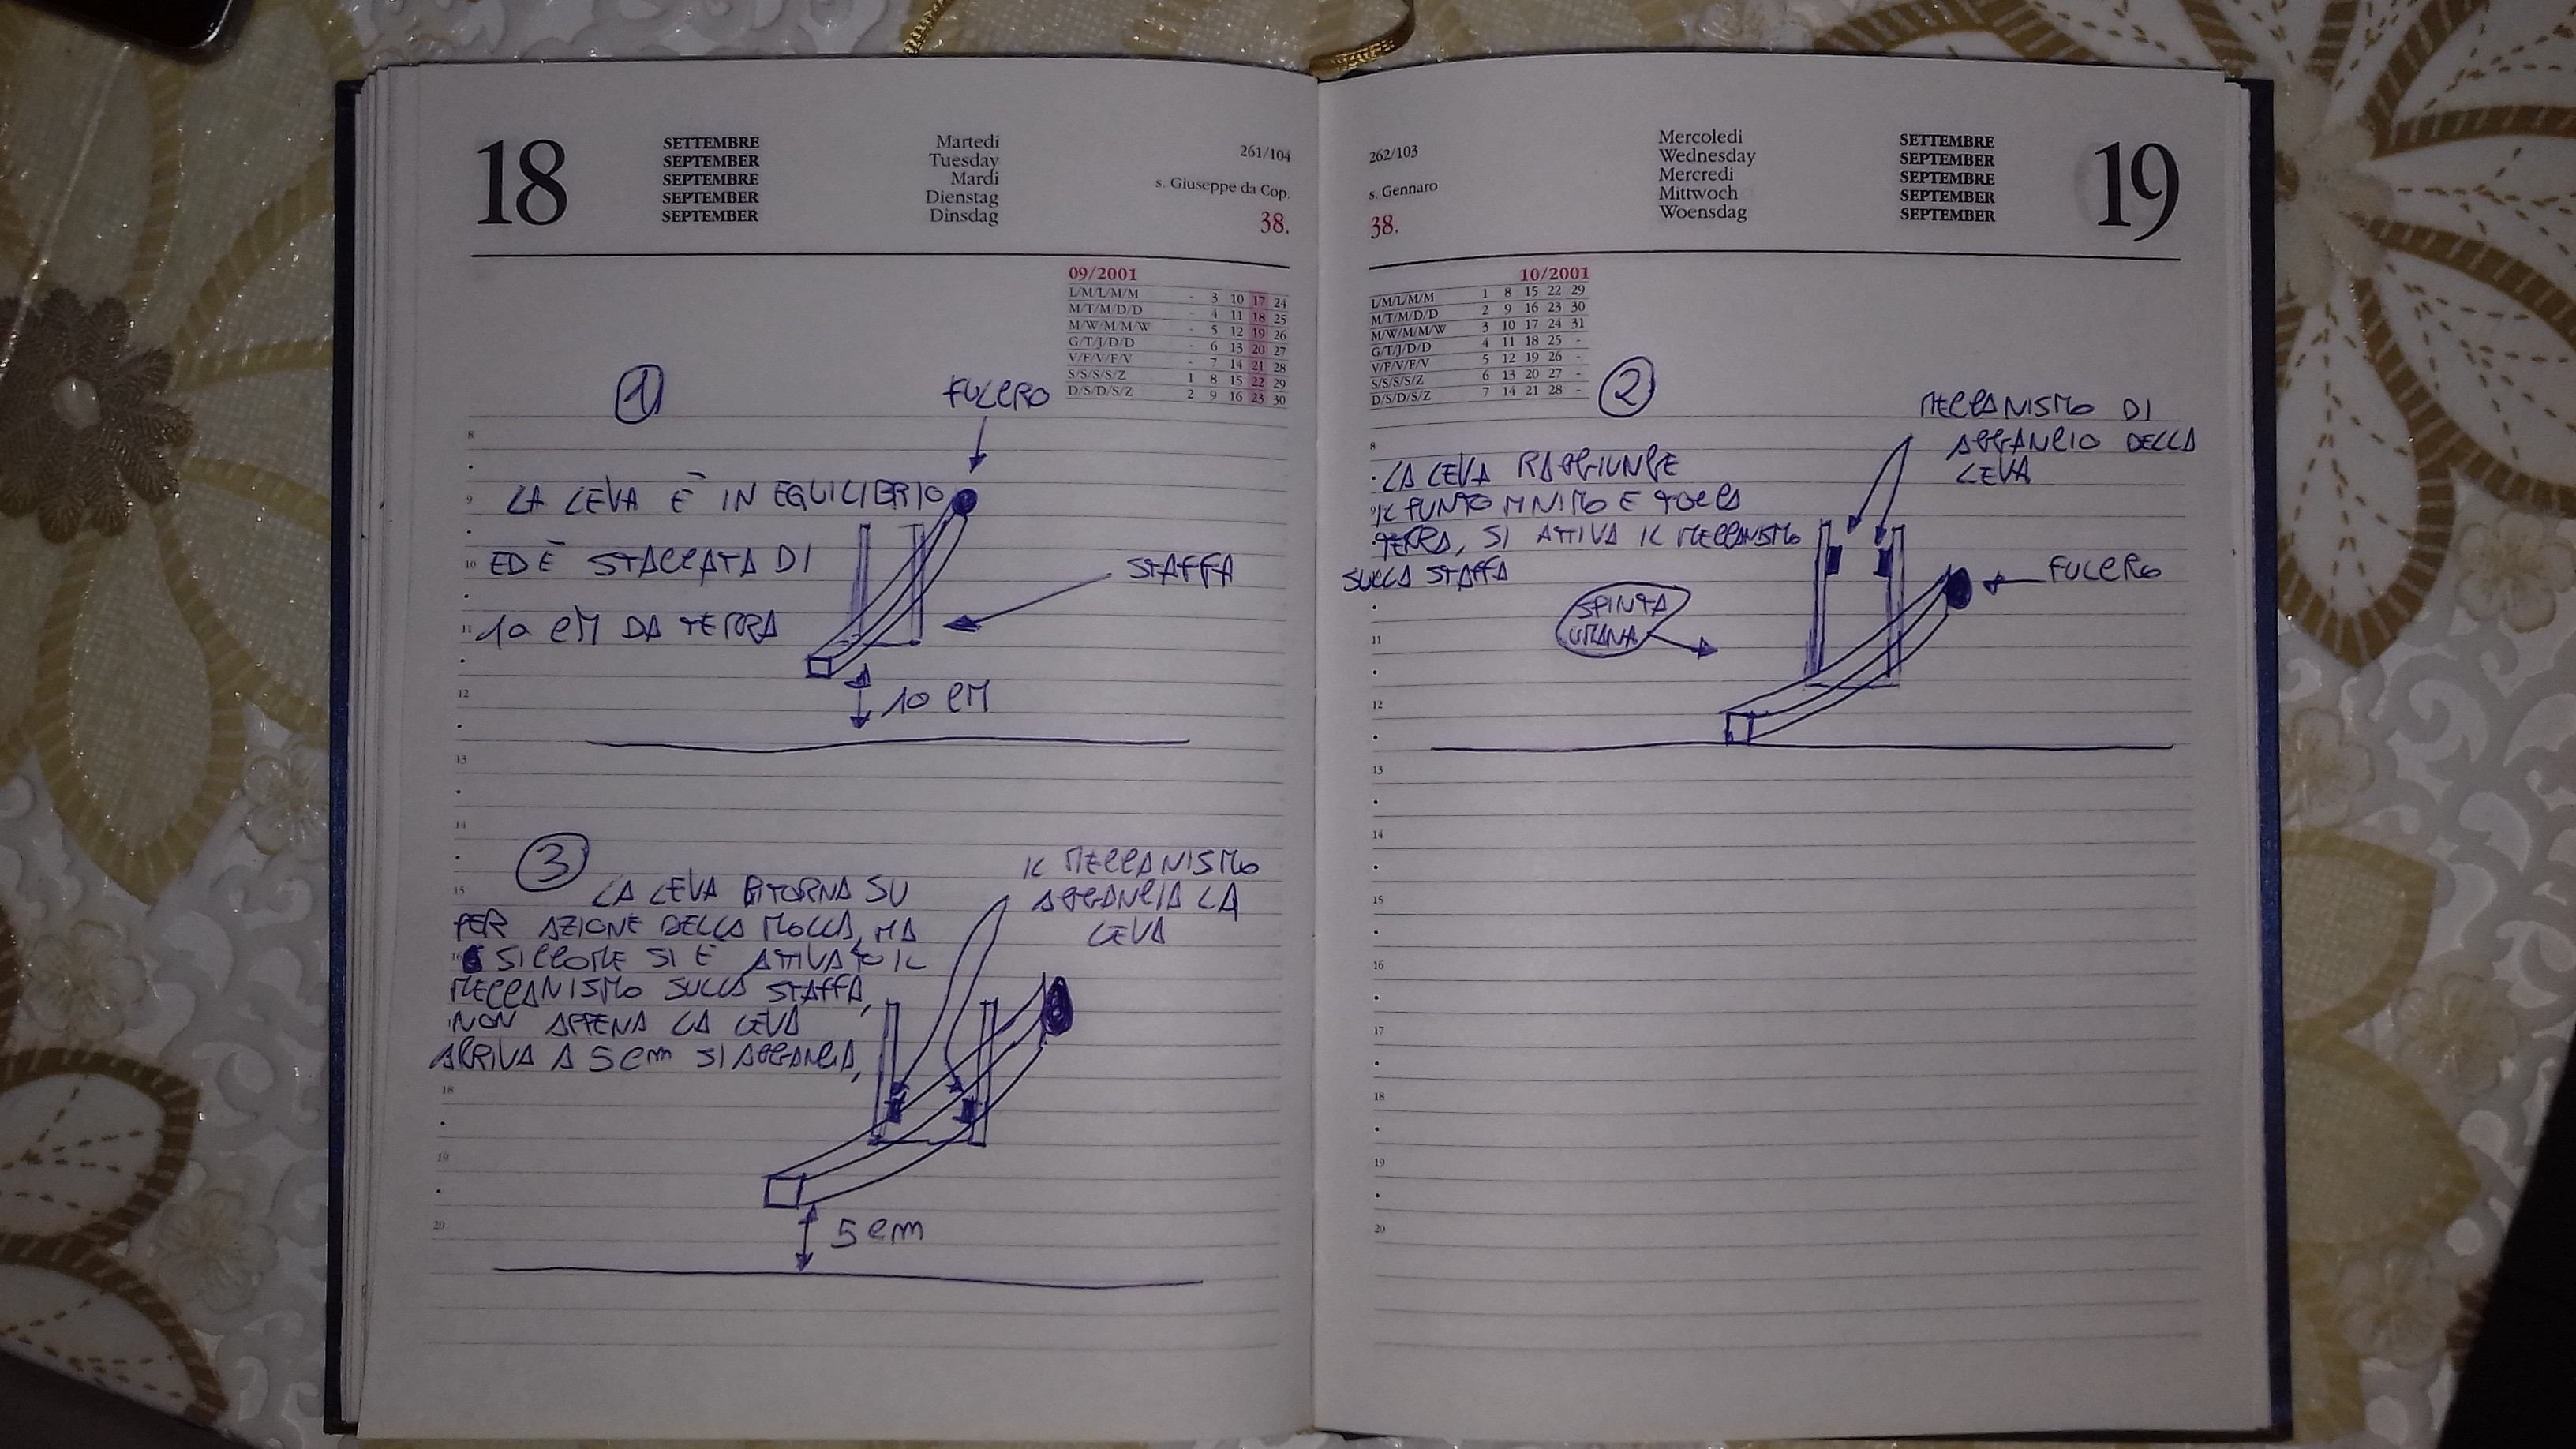 18
SETTEMBRE
SEPTEMBER
SEPTEMBRE
SEPTEMBER
SEPTEMBER
Martedì
Tuesday
Mardi
Dienstag
Dinsdag
261/104
s. Giuseppe da Cop.
38.
09/2001
L/M/L/M/M - 3 10 17 24
M/T/M/D/D - 4 11 18 25
M/W/M/M/W - 5 12 19 26
G/T/J/D/D - 6 13 20 27
V/F/V/F/V - 7 14 21 28
S/S/S/S/Z 1 8 15 22 29
D/S/D/S/Z 2 9 16 23 30
1
FULCRO
LA LEVA È IN EQUILIBRIO
ED È STACCATA DI
10 CM DA TERRA
STAFFA
10 CM
3
LA LEVA RITORNA SU
PER AZIONE DELLA MOLLA, MA
SICCOME SI È ATTIVATO IL
MECCANISMO SULLA STAFFA,
NON APPENA LA LEVA
ARRIVA A 5 cm SI AGGANCIA,
IL MECCANISMO
AGGANCIA LA
LEVA
5 cm
8
9
10
11
12
13
14
15
16
17
18
19
20
262/103
s. Gennaro
38.
Mercoledì
Wednesday
Mercredi
Mittwoch
Woensdag
SETTEMBRE
SEPTEMBER
SEPTEMBRE
SEPTEMBER
SEPTEMBER
19
10/2001
L/M/L/M/M 1 8 15 22 29
M/T/M/D/D 2 9 16 23 30
M/W/M/M/W 3 10 17 24 31
G/T/J/D/D 4 11 18 25 -
V/F/V/F/V 5 12 19 26 -
S/S/S/S/Z 6 13 20 27 -
D/S/D/S/Z 7 14 21 28 -
2
MECCANISMO DI
AGGANCIO DELLA
LEVA
LA LEVA RAGGIUNGE
IL PUNTO MNIMO E TOCCA
TERRA, SI ATTIVA IL MECCANISMO
SULLA STAFFA
SPINTA
UMANA
FULCRO
8
9
11
12
13
14
15
16
17
18
19
20